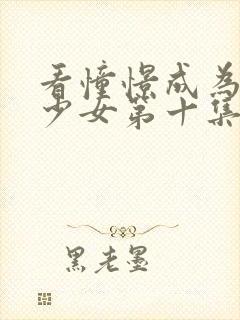 看憧憬成為
少女第十集
黑老墨